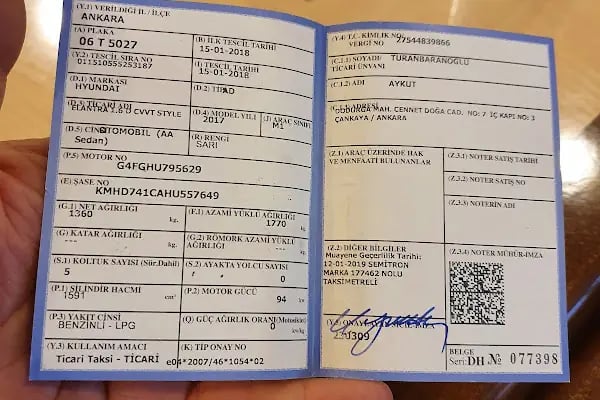 (Y.1) VERİLDİĞİ İL / İLÇE
ANKARA
(A) PLAKA
06 T 5027
(B) İLK TESCİL TARİHİ
15-01-2018
(Y.2) TESCİL SIRA NO
011510555253187
(I) TESCİL TARİHİ
15-01-2018
(D.1) MARKASI
HYUNDAI
(D.2) TİPİ
AD
(D.3) TİCARİ ADI
ELANTRA 1.6 D CVVT STYLE
(D.4) MODEL YILI
2017
(J) ARAÇ SINIFI
M1
(D.5) CİNSİ
OTOMOBİL (AA Sedan)
(R) RENGİ
SARI
(P.5) MOTOR NO
G4FGHU795629
(E) ŞASE NO
KMHD741CAHU557649
(G.1) NET AĞIRLIĞI
1360 kg.
(F.1) AZAMİ YÜKLÜ AĞIRLIĞI
1770 kg.
(G) KATAR AĞIRLIĞI
--- kg.
(G.2) RÖMORK AZAMİ YÜKLÜ AĞIRLIĞI
--- kg.
(S.1) KOLTUK SAYISI (Sür.Dahil)
5
(S.2) AYAKTA YOLCU SAYISI
0
(P.1) SİLİNDİR HACMİ
1591 cm³
(P.2) MOTOR GÜCÜ
94 kw
(P.3) YAKIT CİNSİ
BENZİNLİ - LPG
(Q) GÜÇ AĞIRLIK ORANI(Motosiklet)
0
(Y.3) KULLANIM AMACI
Ticari Taksi - TİCARİ
(K) TİP ONAY NO
e04*2007/46*1054*02
(Y.4) T.C. KİMLİK NO/
VERGİ NO
27544839866
(C.1.1) SOYADI/
TİCARİ ÜNVANI
TURANBARANOĞLU
(C.1.2) ADI
AYKUT
(C.1.3) ADRESİ
DODURGA MAH. CENNET DOĞA CAD. NO: 7 İÇ KAPI NO: 3
ÇANKAYA / ANKARA
(Z.1) ARAÇ ÜZERİNDE HAK
VE MENFAATİ BULUNANLAR
(Z.3.1) NOTER SATIŞ TARİHİ
(Z.3.2) NOTER SATIŞ NO
(Z.3.3) NOTERİN ADI
(Z.2) DİĞER BİLGİLER
Muayene Geçerlilik Tarihi:
12-01-2019 SEMİTRON
MARKA 177462 NOLU
TAKSİMETRELİ
(Z.3.4) NOTER MÜHÜR-İMZA
BELGE
Seri:DH № 077398